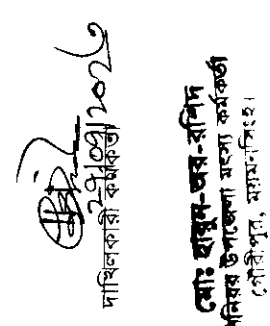 দাখিলকারী কর্মকর্তা
মোঃ হারুন-অর-রশিদ
সিনিয়র উপজেলা মৎস্য কর্মকর্তা
গৌরীপুর, ময়মনসিংহ।